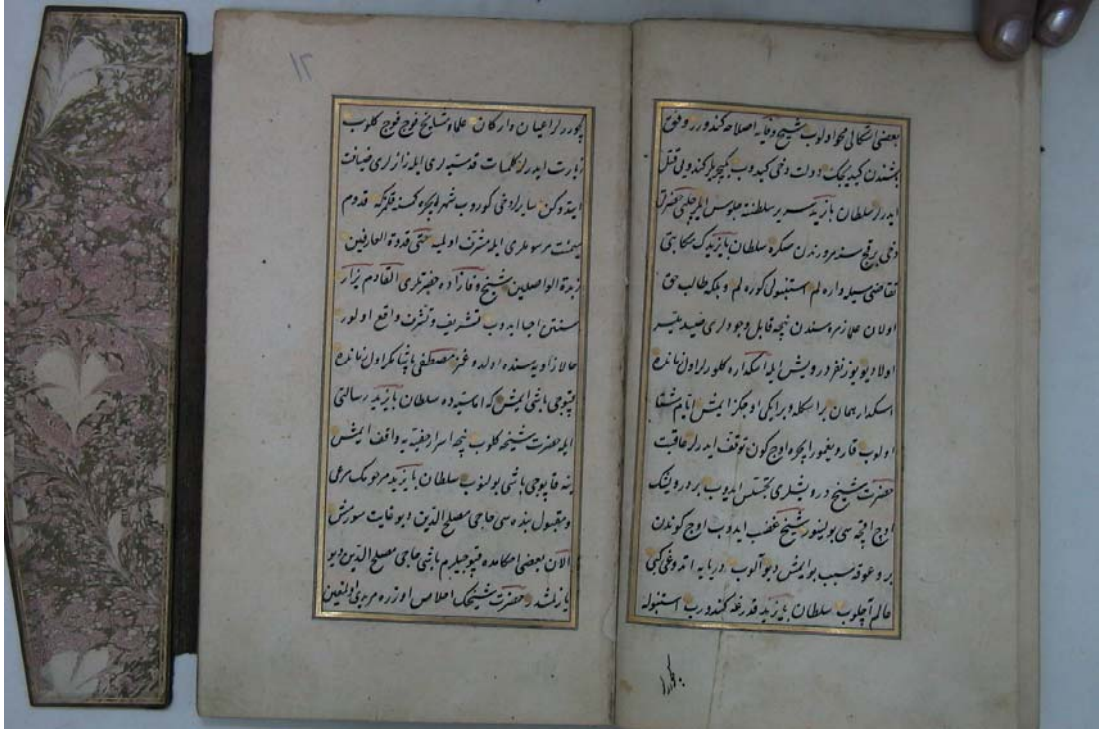 بعضی اشکالی محو اولوب شیخ وفایه اصلاحه کندورر و فوق
دولت دخی کیدوب کندولی قتل
ایدرلر سلطان بایزید سریر سلطنته جلوس ایلر چلبی حضرتی
دخی برقچ سنه مرورندن صکره سلطان بایزیدک مکاتبتی
تقاضی سیله واره لم استنبولی کوره لم و بلکه طالب حق
اولان علما زمره سندن نیچه قابل وجودلری صید
اولا دیو یوز نفر درویش ایله اسکداره کلورلر اول زمانده
اسکدار همان بر اسکله ایرایکی اوجکز ایمش ایام شتا
اولوب قار و یغمور ایچره اوچ کون توقف ایدرلر عاقبت
حضرت شیخ درویشلری تجسس ایدوب بر درویشک
اوچ اقچه سی بولینور شیخ غضب ایدوب اوچ کوندن
برو عوقه سبب بو ایمش دیو آلوب دریایه اتدوغی کبی
عالم آچلوب سلطان بایزید قدرغه کندورب استنبوله
کچوررلر اعیان و ارکان علما و مشایخ فوج فوج کلوب
زیارت ایدرلر کلمات قدسیه لری ایله زائرلری ضیافت
ایتدوکن سایرلر دخی کوروب شهر ایچره کسنه قلمز که قدوم
میمنت مرسوملری ایله مشرف اولمیه حتی قدوة العارفین
زبدة الواصلین شیخ وفازاده حضرتلری القادم یزار
سنتن احیا ایدوب تشریف و تشرف واقع اولور
حالا زاویه سنده اولده غنز مصطفی پاشا مکر اول زمانده
قپوجی باشی ایمش که اماسیه ده سلطان بایزید رسالتی
ایله حضرت شیخه کلوب نیچه اسرار خفیه یه واقف ایمش
ینه قاپوجی باشی بولنوب سلطان بایزید مرحومک مرعی
و مقبول بنده سی حاجی مصلح الدین دیو غایت سورمش
الان بعضی احکامده قپوجیلرم باشی حاجی مصلح الدین دیو
یازلمشدر حضرت شیخک اخلاص اوزره مریدی اولمغین
۱۲